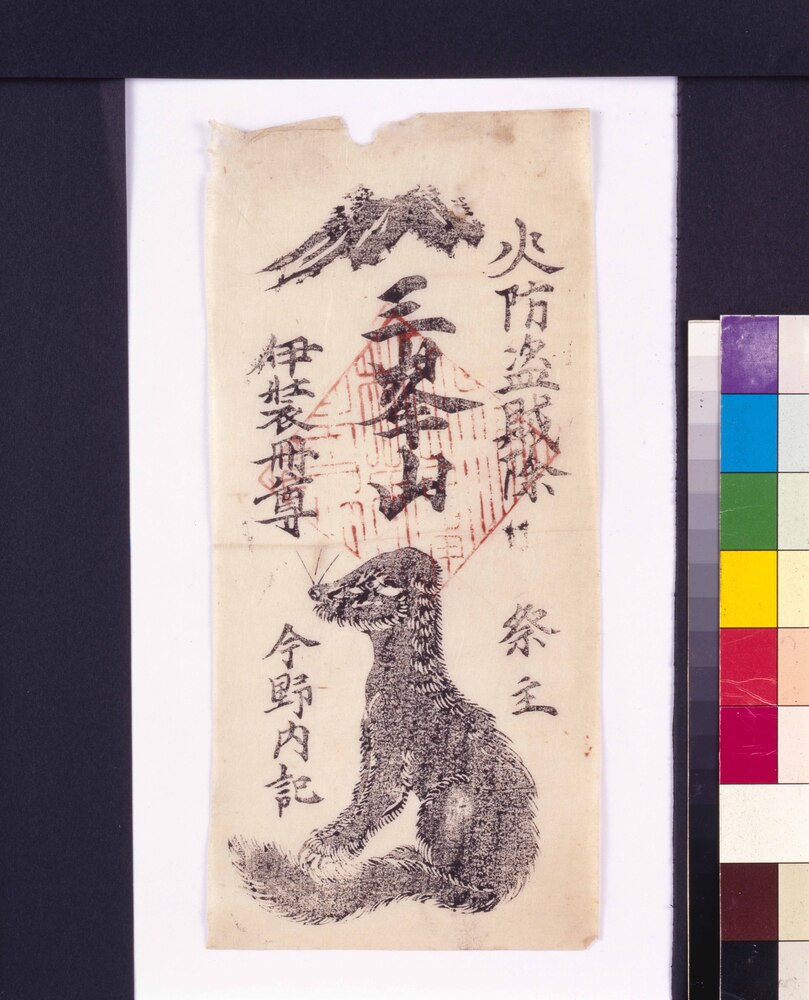 火防盗賊除
祭主
三峯山
伊弉册尊
今野内記